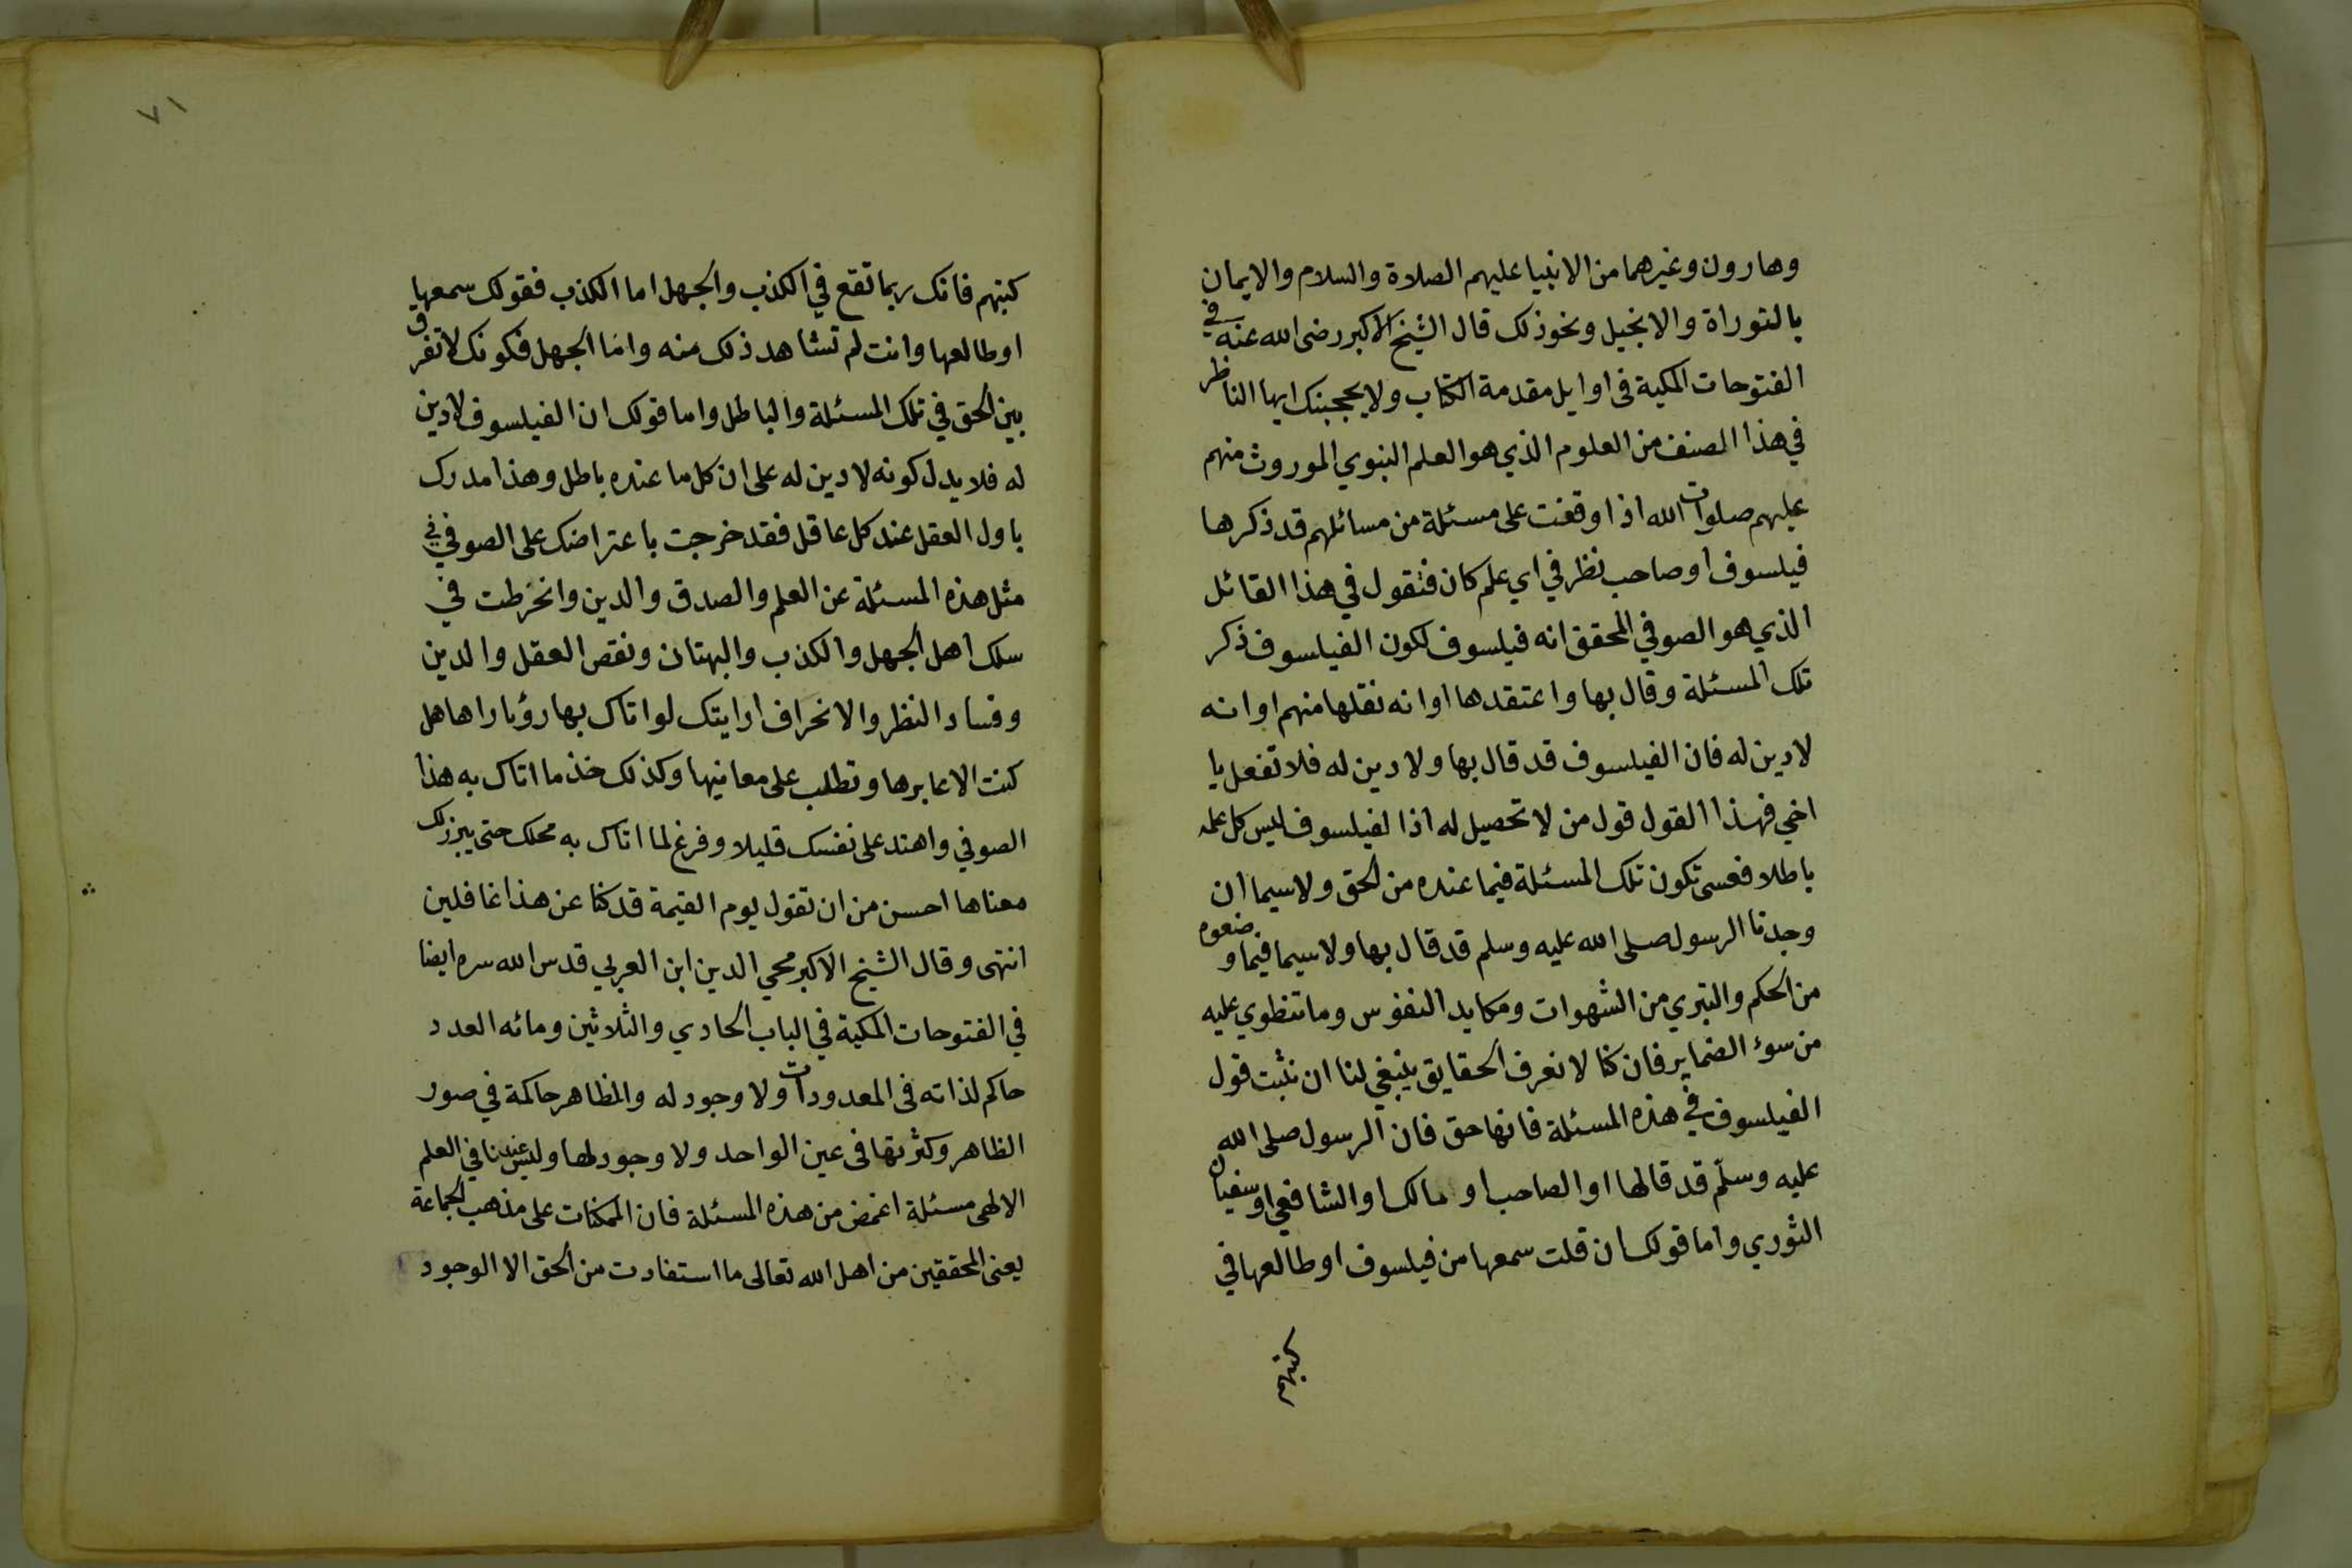 وهارون وغيرهما من الانبيا عليهم الصلاة والسلام والايمان
بالتوراة والانجيل ونحو ذلك قال الشيخ الاكبر رضى الله عنه في
الفتوحات المكية فى اوايل مقدمة الكتاب ولا يحجبنك ايها الناظر
في هذا الصنف من العلوم الذي هو العلم النبوي الموروث منهم
عليهم صلوات الله اذا وقفت على مسئلة من مسائلهم قد ذكرها
فيلسوف او صاحب نظر في اي علم كان فتقول في هذا القائل
الذي هو الصوفي المحقق انه فيلسوف لكون الفيلسوف ذكر
تلك المسئلة وقال بها واعتقدها او انه نقلها منهم او انه
لا دين له فان الفيلسوف قد قال بها ولا دين له فلا تفعل يا
اخي فهذا القول قول من لا تحصيل له اذ الفيلسوف ليس كل علمه
باطلا فعسى تكون تلك المسئلة فيما عنده من الحق ولا سيما ان
وجدنا الرسول صلى الله عليه وسلم قد قال بها ولا سيما فيما وضعوه
من الحكم والتبري من الشهوات ومكايد النفوس وما تنطوي عليه
من سوء الضماير فان كنا لا نعرف الحقايق ينبغي لنا ان نثبت قول
الفيلسوف في هذه المسئلة فانها حق فان الرسول صلى الله
عليه وسلّم قد قالها او الصاحب او مالك او الشافعي او سفيان
الثوري واما قولك ان قلت سمعها من فيلسوف او طالعها في
كتبهم
٧١
كتبهم فانك ربما تقع في الكذب والجهل اما الكذب فقولك سمعها
او طالعها وانت لم تشاهد ذلك منه وامّا الجهل فكونك لا تفرق
بين الحق في تلك المسئلة والباطل واما قولك ان الفيلسوف لا دين
له فلا يدل كونه لا دين له على ان كل ما عنده باطل وهذا مدرك
باول العقل عند كل عاقل فقد خرجت باعتراضك على الصوفي في
مثل هذه المسئلة عن العلم والصدق والدين وانخرطت في
سلك اهل الجهل والكذب والبهتان ونقص العقل والدين
وفساد النظر والانحراف ارايتك لو اتاك بها رؤيا راها هل
كنت الا عابرها وتطلب على معانيها وكذلك خذ ما اتاك به هذا
الصوفي واهتد على نفسك قليلا وفرغ لما اتاك به محلك حتى يبرز لك
معناها احسن من ان تقول يوم القيمة قد كنا عن هذا غافلين
انتهى وقال الشيخ الاكبر محي الدين ابن العربي قدس الله سره ايضا
في الفتوحات المكية في الباب الحادي والثلاثين ومائه العدد
حاكم لذاته فى المعدودات ولا وجود له والمظاهر حاكمة في صور
الظاهر وكثرتها فى عين الواحد ولا وجود لها وليس عندنا في العلم
الالهى مسئلة اغمض من هذه المسئلة فان الممكنات على مذهب الجماعة
يعنى المحققين من اهل الله تعالى ما استفادت من الحق الا الوجود